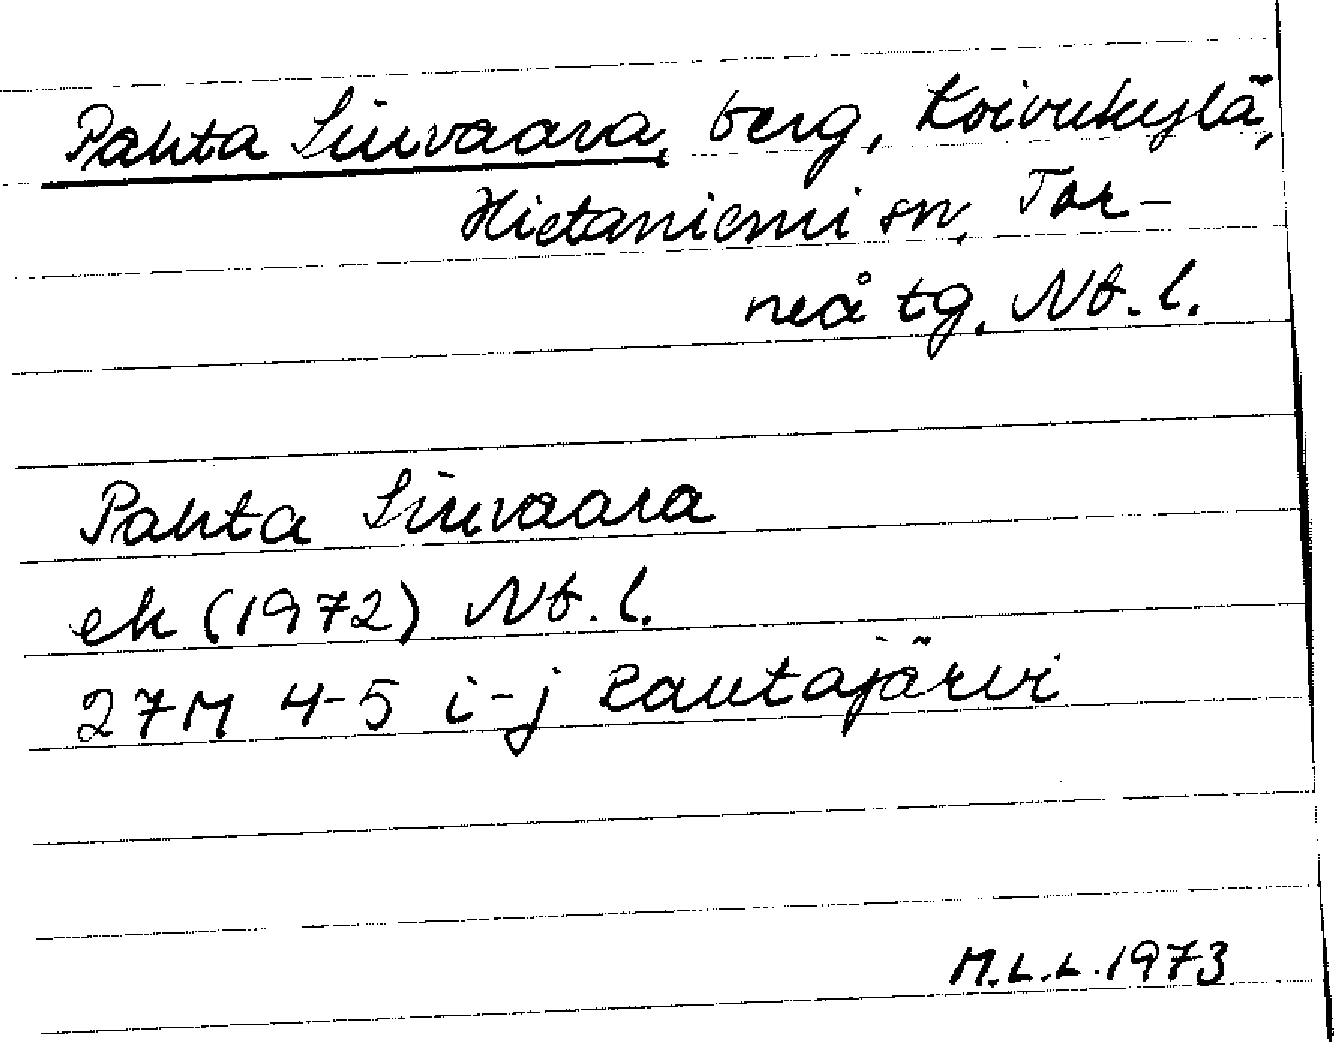 Pahta Siuvaara, berg, Koivukylä,
Hietaniemi sn, Tor-
neå tg. Nb. l.
Pahta Siuvaara
ek (1972) Nb. l.
27M 4-5 i-j Rautajärvi
M.L.L. 1973